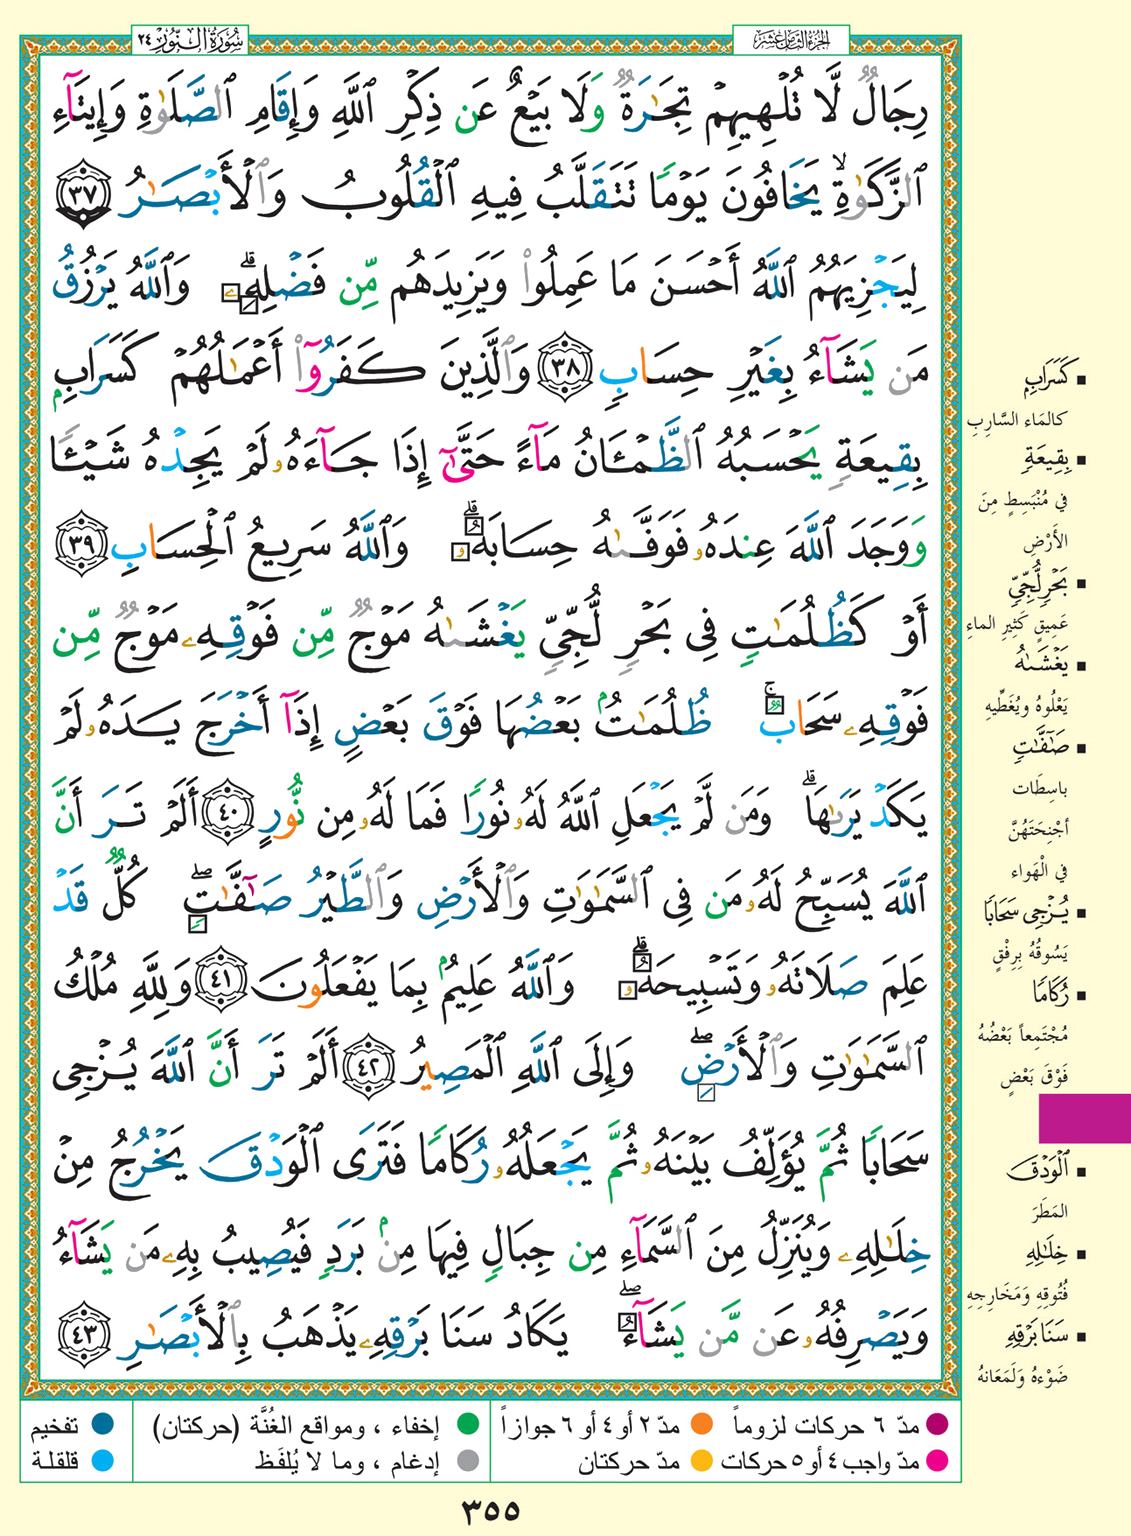 سُورَةُ النُّورِ ٢٤
الجُزءُ الثَّامِنَ عَشَرَ
رِجَالٌ لَّا تُلْهِيهِمْ تِجَٰرَةٌ وَلَا بَيْعٌ عَن ذِكْرِ ٱللَّهِ وَإِقَامِ ٱلصَّلَوٰةِ وَإِيتَآءِ
ٱلزَّكَوٰةِ ۙ يَخَافُونَ يَوْمًا تَتَقَلَّبُ فِيهِ ٱلْقُلُوبُ وَٱلْأَبْصَٰرُ ٣٧
لِيَجْزِيَهُمُ ٱللَّهُ أَحْسَنَ مَا عَمِلُوا۟ وَيَزِيدَهُم مِّن فَضْلِهِۦ ۗ وَٱللَّهُ يَرْزُقُ
مَن يَشَآءُ بِغَيْرِ حِسَابٍ ٣٨ وَٱلَّذِينَ كَفَرُوٓا۟ أَعْمَٰلُهُمْ كَسَرَابٍۭ
بِقِيعَةٍ يَحْسَبُهُ ٱلظَّمْـَٔانُ مَآءً حَتَّىٰٓ إِذَا جَآءَهُۥ لَمْ يَجِدْهُ شَيْـًٔا
وَوَجَدَ ٱللَّهَ عِندَهُۥ فَوَفَّىٰهُ حِسَابَهُۥ ۗ وَٱللَّهُ سَرِيعُ ٱلْحِسَابِ ٣٩
أَوْ كَظُلُمَٰتٍ فِى بَحْرٍ لُّجِّىٍّ يَغْشَىٰهُ مَوْجٌ مِّن فَوْقِهِۦ مَوْجٌ مِّن
فَوْقِهِۦ سَحَابٌ ۚ ظُلُمَٰتٌۢ بَعْضُهَا فَوْقَ بَعْضٍ إِذَآ أَخْرَجَ يَدَهُۥ لَمْ
يَكَدْ يَرَىٰهَا ۗ وَمَن لَّمْ يَجْعَلِ ٱللَّهُ لَهُۥ نُورًا فَمَا لَهُۥ مِن نُّورٍ ٤٠ أَلَمْ تَرَ أَنَّ
ٱللَّهَ يُسَبِّحُ لَهُۥ مَن فِى ٱلسَّمَٰوَٰتِ وَٱلْأَرْضِ وَٱلطَّيْرُ صَٰٓفَّٰتٍ ۖ كُلٌّ قَدْ
عَلِمَ صَلَاتَهُۥ وَتَسْبِيحَهُۥ ۗ وَٱللَّهُ عَلِيمٌۢ بِمَا يَفْعَلُونَ ٤١ وَلِلَّهِ مُلْكُ
ٱلسَّمَٰوَٰتِ وَٱلْأَرْضِ ۖ وَإِلَى ٱللَّهِ ٱلْمَصِيرُ ٤٢ أَلَمْ تَرَ أَنَّ ٱللَّهَ يُزْجِى
سَحَابًا ثُمَّ يُؤَلِّفُ بَيْنَهُۥ ثُمَّ يَجْعَلُهُۥ رُكَامًا فَتَرَى ٱلْوَدْقَ يَخْرُجُ مِنْ
خِلَٰلِهِۦ وَيُنَزِّلُ مِنَ ٱلسَّمَآءِ مِن جِبَالٍ فِيهَا مِنۢ بَرَدٍ فَيُصِيبُ بِهِۦ مَن يَشَآءُ
وَيَصْرِفُهُۥ عَن مَّن يَشَآءُ ۖ يَكَادُ سَنَا بَرْقِهِۦ يَذْهَبُ بِٱلْأَبْصَٰرِ ٤٣
كَسَرَابٍۭ
كالمَاء السَّارِبِ
بِقِيعَةٍ
في مُنْبَسِطٍ مِنَ
الأَرْضِ
بَحْرٍ لُّجِّيٍّ
عَمِيقٍ كَثِيرِ الماءِ
يَغْشَىٰهُ
يَعْلُوهُ ويُغَطِّيهِ
صَٰٓفَّٰتٍ
باسِطَات
أجْنِحَتَهُنَّ
في الْهَواء
يُزْجِى سَحَابًا
يَسُوقُهُ بِرِفْقٍ
رُكَامًا
مُجْتَمِعاً بَعْضُهُ
فَوْقَ بَعْضٍ
ٱلْوَدْقَ
المَطَرَ
خِلَٰلِهِ
فُتُوقِهِ وَمَخَارِجِهِ
سَنَا بَرْقِهِ
ضَوْءهُ وَلَمَعَانهُ
مدّ ٦ حركات لزوماً مدّ ٢ أو ٤ أو ٦ جوازاً إخفاء ، ومواقع الغُنَّة (حركتان) تفخيم
مدّ واجب ٤ أو ٥ حركات مدّ حركتان إدغام ، وما لا يُلفَظ قلقلة
٣٥٥